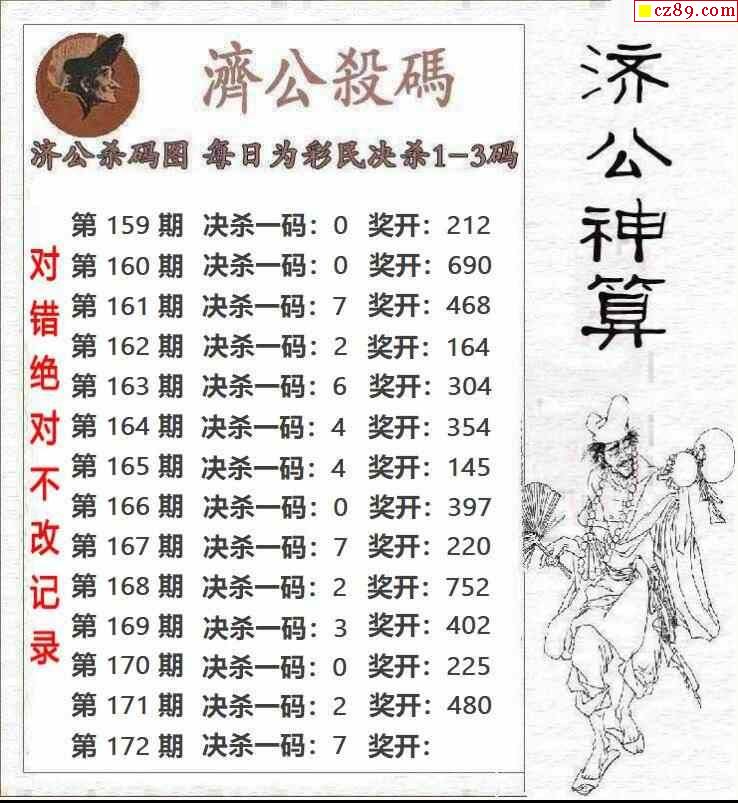 cz89.com
濟公殺碼
济公杀码图 每日为彩民决杀1-3码
第 159 期 决杀一码：0 奖开：212
第 160 期 决杀一码：0 奖开：690
第 161 期 决杀一码：7 奖开：468
第 162 期 决杀一码：2 奖开：164
第 163 期 决杀一码：6 奖开：304
第 164 期 决杀一码：4 奖开：354
第 165 期 决杀一码：4 奖开：145
第 166 期 决杀一码：0 奖开：397
第 167 期 决杀一码：7 奖开：220
第 168 期 决杀一码：2 奖开：752
第 169 期 决杀一码：3 奖开：402
第 170 期 决杀一码：0 奖开：225
第 171 期 决杀一码：2 奖开：480
第 172 期 决杀一码：7 奖开：
对错绝对不改记录
济公神算